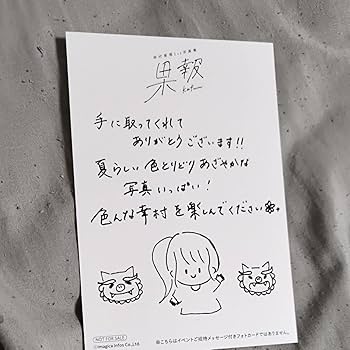 果報
手に取ってくれて
ありがとうございます!!
夏らしい色とりどりあざやかな
写真いっぱい!
色んな幸村を楽しんでください
NOT FOR SALE
©Imagica Infos Co.,Ltd.
※こちらはイベントご招待メッセージ付きフォトカードではありません。